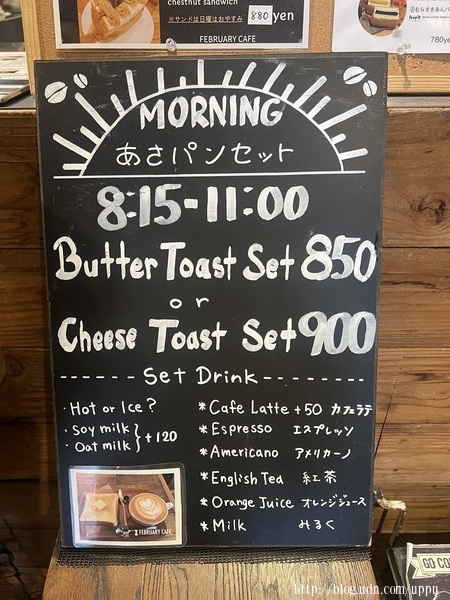 chestnut sandwich
※サンドは日曜はおやすみ 880yen
FEBRUARY CAFE
780yen
MORNING
あさパンセット
8:15-11:00
Butter Toast Set 850
or
Cheese Toast Set 900
------Set Drink--------
・Hot or Ice?
・Soy milk
・Oat milk } +120
*Cafe Latte +50 カフェラテ
*Espresso エスプレッソ
*Americano アメリカーノ
*English Tea 紅茶
*Orange Juice オレンジジュース
*Milk みるく
FEBRUARY CAFE
GO CO
http://blog.udn.com/uppu